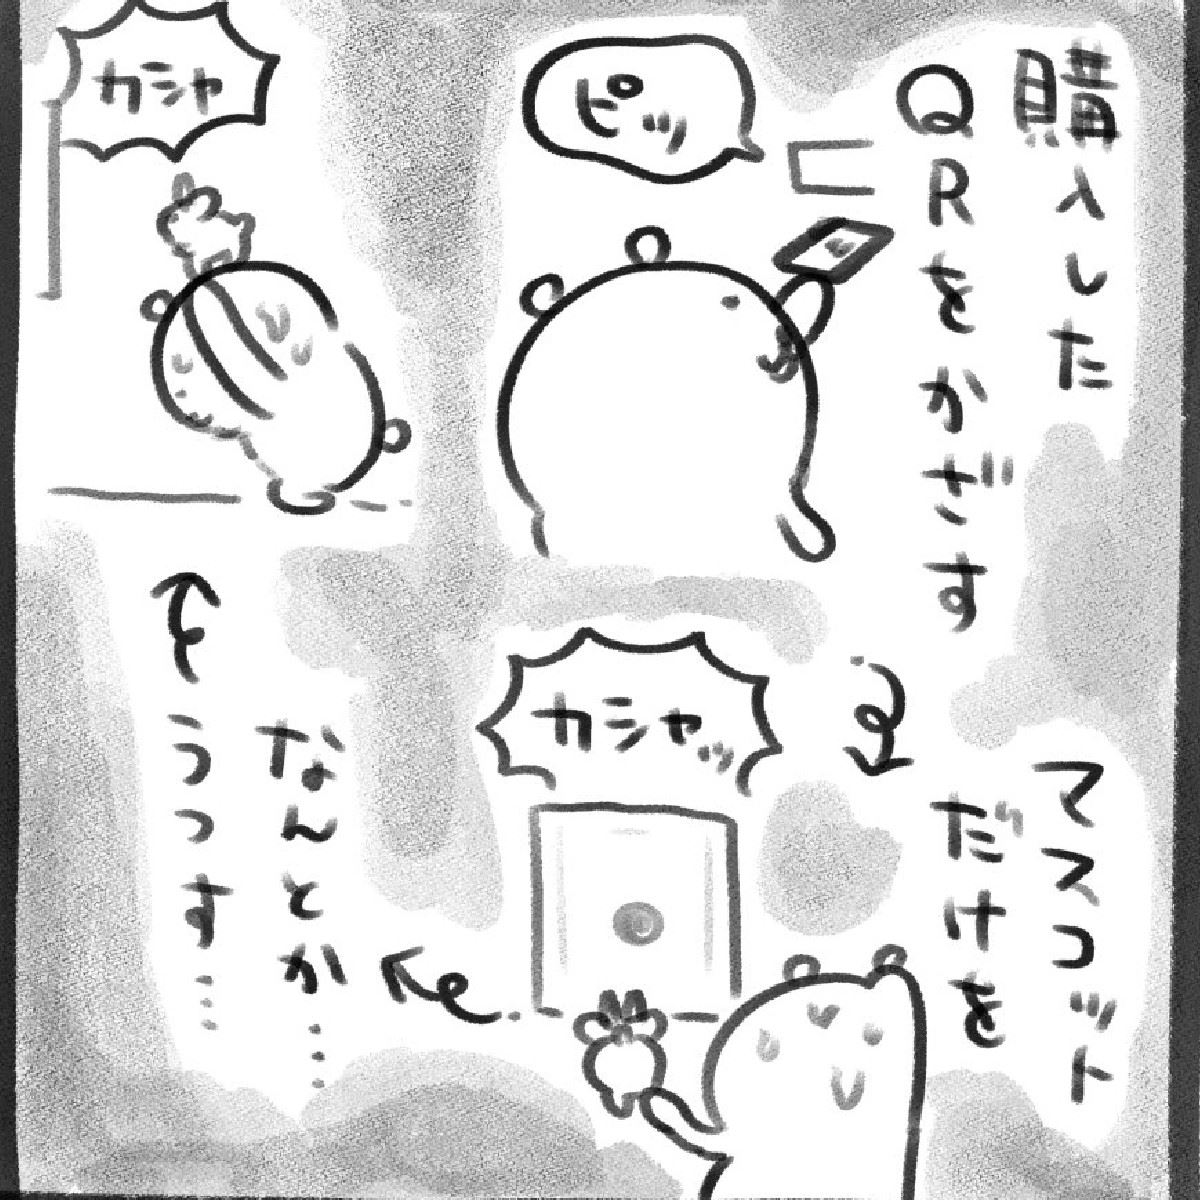 購入した
QRをかざす
ピッ
マスコット
だけを
カシャッ
なんとか…
うつす…
カシャ